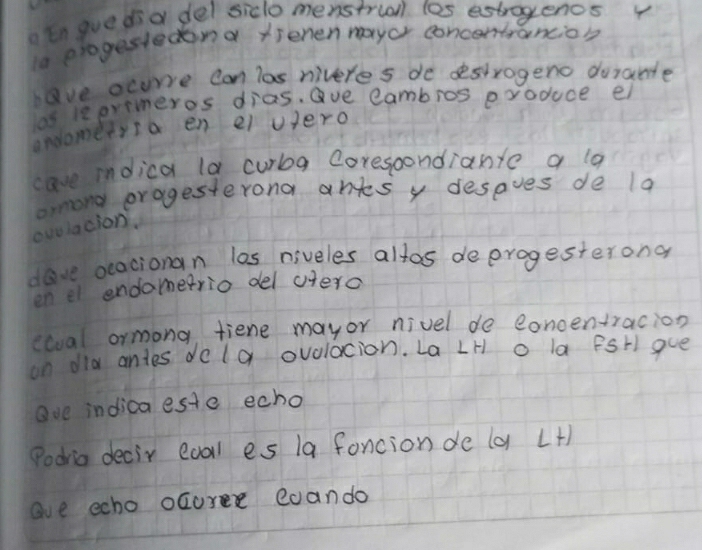 a En que dia del siclo menstrual los estrogenos y
la progestedona tienen mayor concentrancion
b Que ocurre con los niveles de estrogeno durante
los 12 primeros dias. Que Cambios produce el
endometria en el utero
c que indica la curba Corespondiante a la
ormona progesterona antes y despues de la
ovulacion.
d Que ocacionan los niveles altos de progesterona
en el endometrio del utero
e cual ormona tiene mayor nivel de concentracion
un dia antes de la ovulacion. La LH o la FSH que
Que indica este echo
Podria decir cual es la foncion de la LH
Que echo ocurre cuando